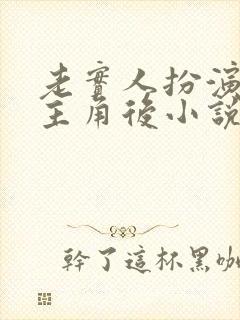 老實人扮演
主角後小說
幹了這杯黑咖